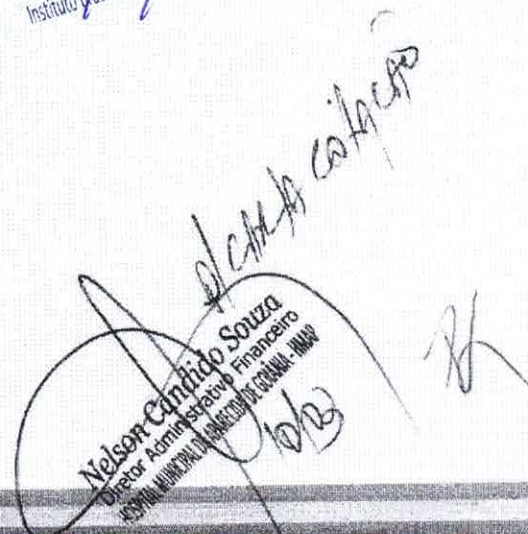 Instituto
p/ CARTA COTAÇÃO
Nelson Candido Souza
Diretor Administrativo Financeiro
HOSPITAL MUNICIPAL DE APARECIDA DE GOIÂNIA - HMAP